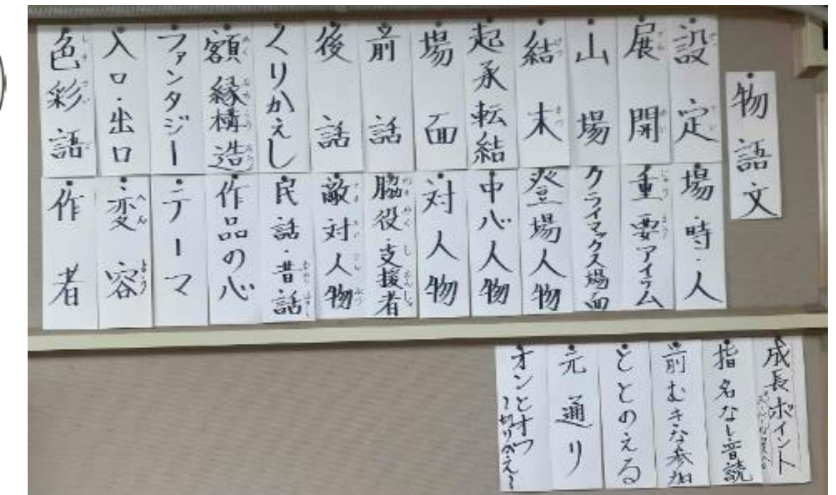 物語文
設定
展開
山場
結末
起承転結
場面
前話
後話
くりかえし
額縁構造
ファンタジー
入口・出口
色彩語
場・時・人
重要アイテム
クライマックス場面
登場人物
中心人物
対人物
脇役・支援者
敵対人物
民話・昔話
作品の心
テーマ
変容
作者
成長ポイント
指名なし音読
前むきな参加
ととのえる
元通り
オンとオフ
〜切りかえ〜